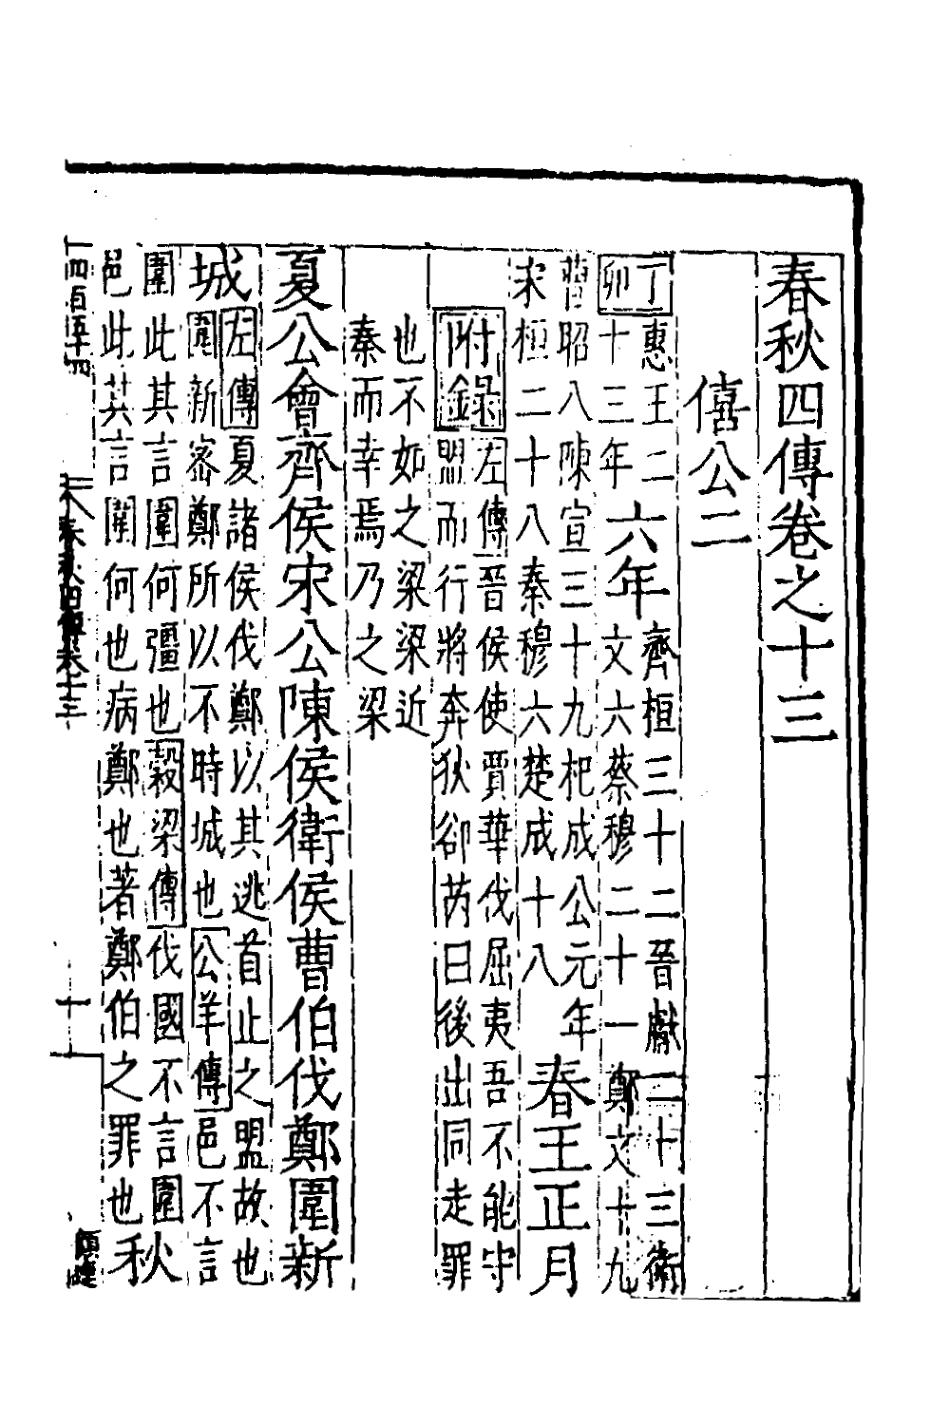 春秋四傳卷之十三
僖公二
丁卯惠王二十三年六年齊桓三十二晉獻二十三衛
文六蔡穆二十一鄭文十九
曹昭八陳宣三十九杞成公元年
宋桓二十八秦穆六楚成十八春王正月
附錄左傳晉侯使賈華伐屈夷吾不能守
盟而行將奔狄郤芮曰後出同走罪
也不如之梁梁近
秦而幸焉乃之梁
夏公會齊侯宋公陳侯衛侯曹伯伐鄭圍新
城左傳夏諸侯伐鄭以其逃首止之盟故也
圍新密鄭所以不時城也公羊傳邑不言
圍此其言圍何彊也穀梁傳伐國不言圍
邑此其言圍何也病鄭也著鄭伯之罪也秋
四百五十四
春秋四傳卷十三
十